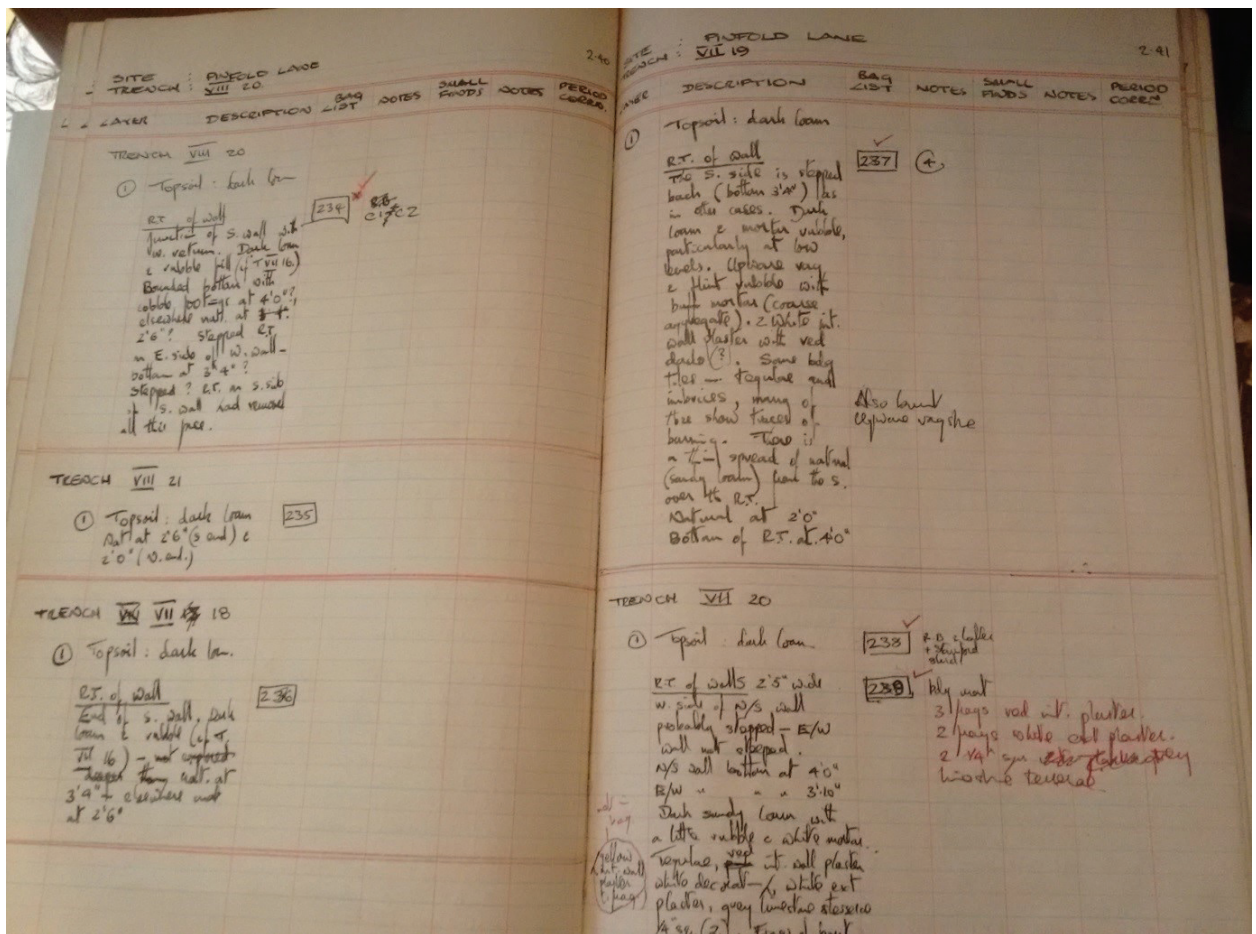 2.40
SITE : PINFOLD LANE
TRENCH : VIII 20
LAYER DESCRIPTION BAG LIST NOTES SMALL FINDS NOTES PERIOD CORRN.
TRENCH VIII 20
① Topsoil : dark loam
234
R.T. of wall
Junction of S. wall with
W. return. Dark loam
& rubble fill (cf T VII 16.)
bottom with
cobble at 4'0"?
elsewhere nat. at
2'6"? Stepped R.T.
on E. side of W. wall -
bottom at 3'4"?
Stepped? R.T. on S. side
of S. wall had removed
all this face.
TRENCH VIII 21
① Topsoil : dark loam 235
Nat at 2'6" (S end) &
2'0" (N. end.)
TRENCH VII 18
① Topsoil : dark loam.
R.T. of wall 236
End of S. wall, Dark
loam & rubble (cf T.
VII 16) - not
nat. at
3'4" + elsewhere nat
at 2'6"
2.41
SITE : PINFOLD LANE
TRENCH : VII 19
LAYER DESCRIPTION BAG LIST NOTES SMALL FINDS NOTES PERIOD CORRN
① Topsoil : dark loam
R.T. of wall 237 4
The S. side is stepped
back (bottom 3'4") as
in other cases. Dark
loam & mortar rubble,
particularly at low
levels. rag
& flint rubble with
buff mortar (coarse
aggregate). & White int.
wall plaster with red
dado (?). Some bdg
tiles - tegulae and
imbrices, many of
these show traces of
burning. There is
a thin spread of natural
(sandy loam) from the S.
over the R.T.
Natural at 2'0"
Bottom of R.T. at 4'0"
Also burnt
ragstone
TRENCH VII 20
① Topsoil : dark loam 238
+ Stamford
sherd
R.T. of walls 2'5" wide 239 bdg mat
W. side of N/S wall
probably stepped - E/W
wall not stepped.
N/S wall bottom at 4'0"
E/W " " " 3'10"
Dark sandy loam with
a little rubble & white mortar.
Tegulae, red int. wall plaster
white decorat-, white ext
plaster, grey limestone tesserae
1/4" sq. (2).
3 frags red int. plaster.
2 frags white ext plaster.
2 1/4" sqr grey
limestone tesserae.
yellow
int. wall
plaster